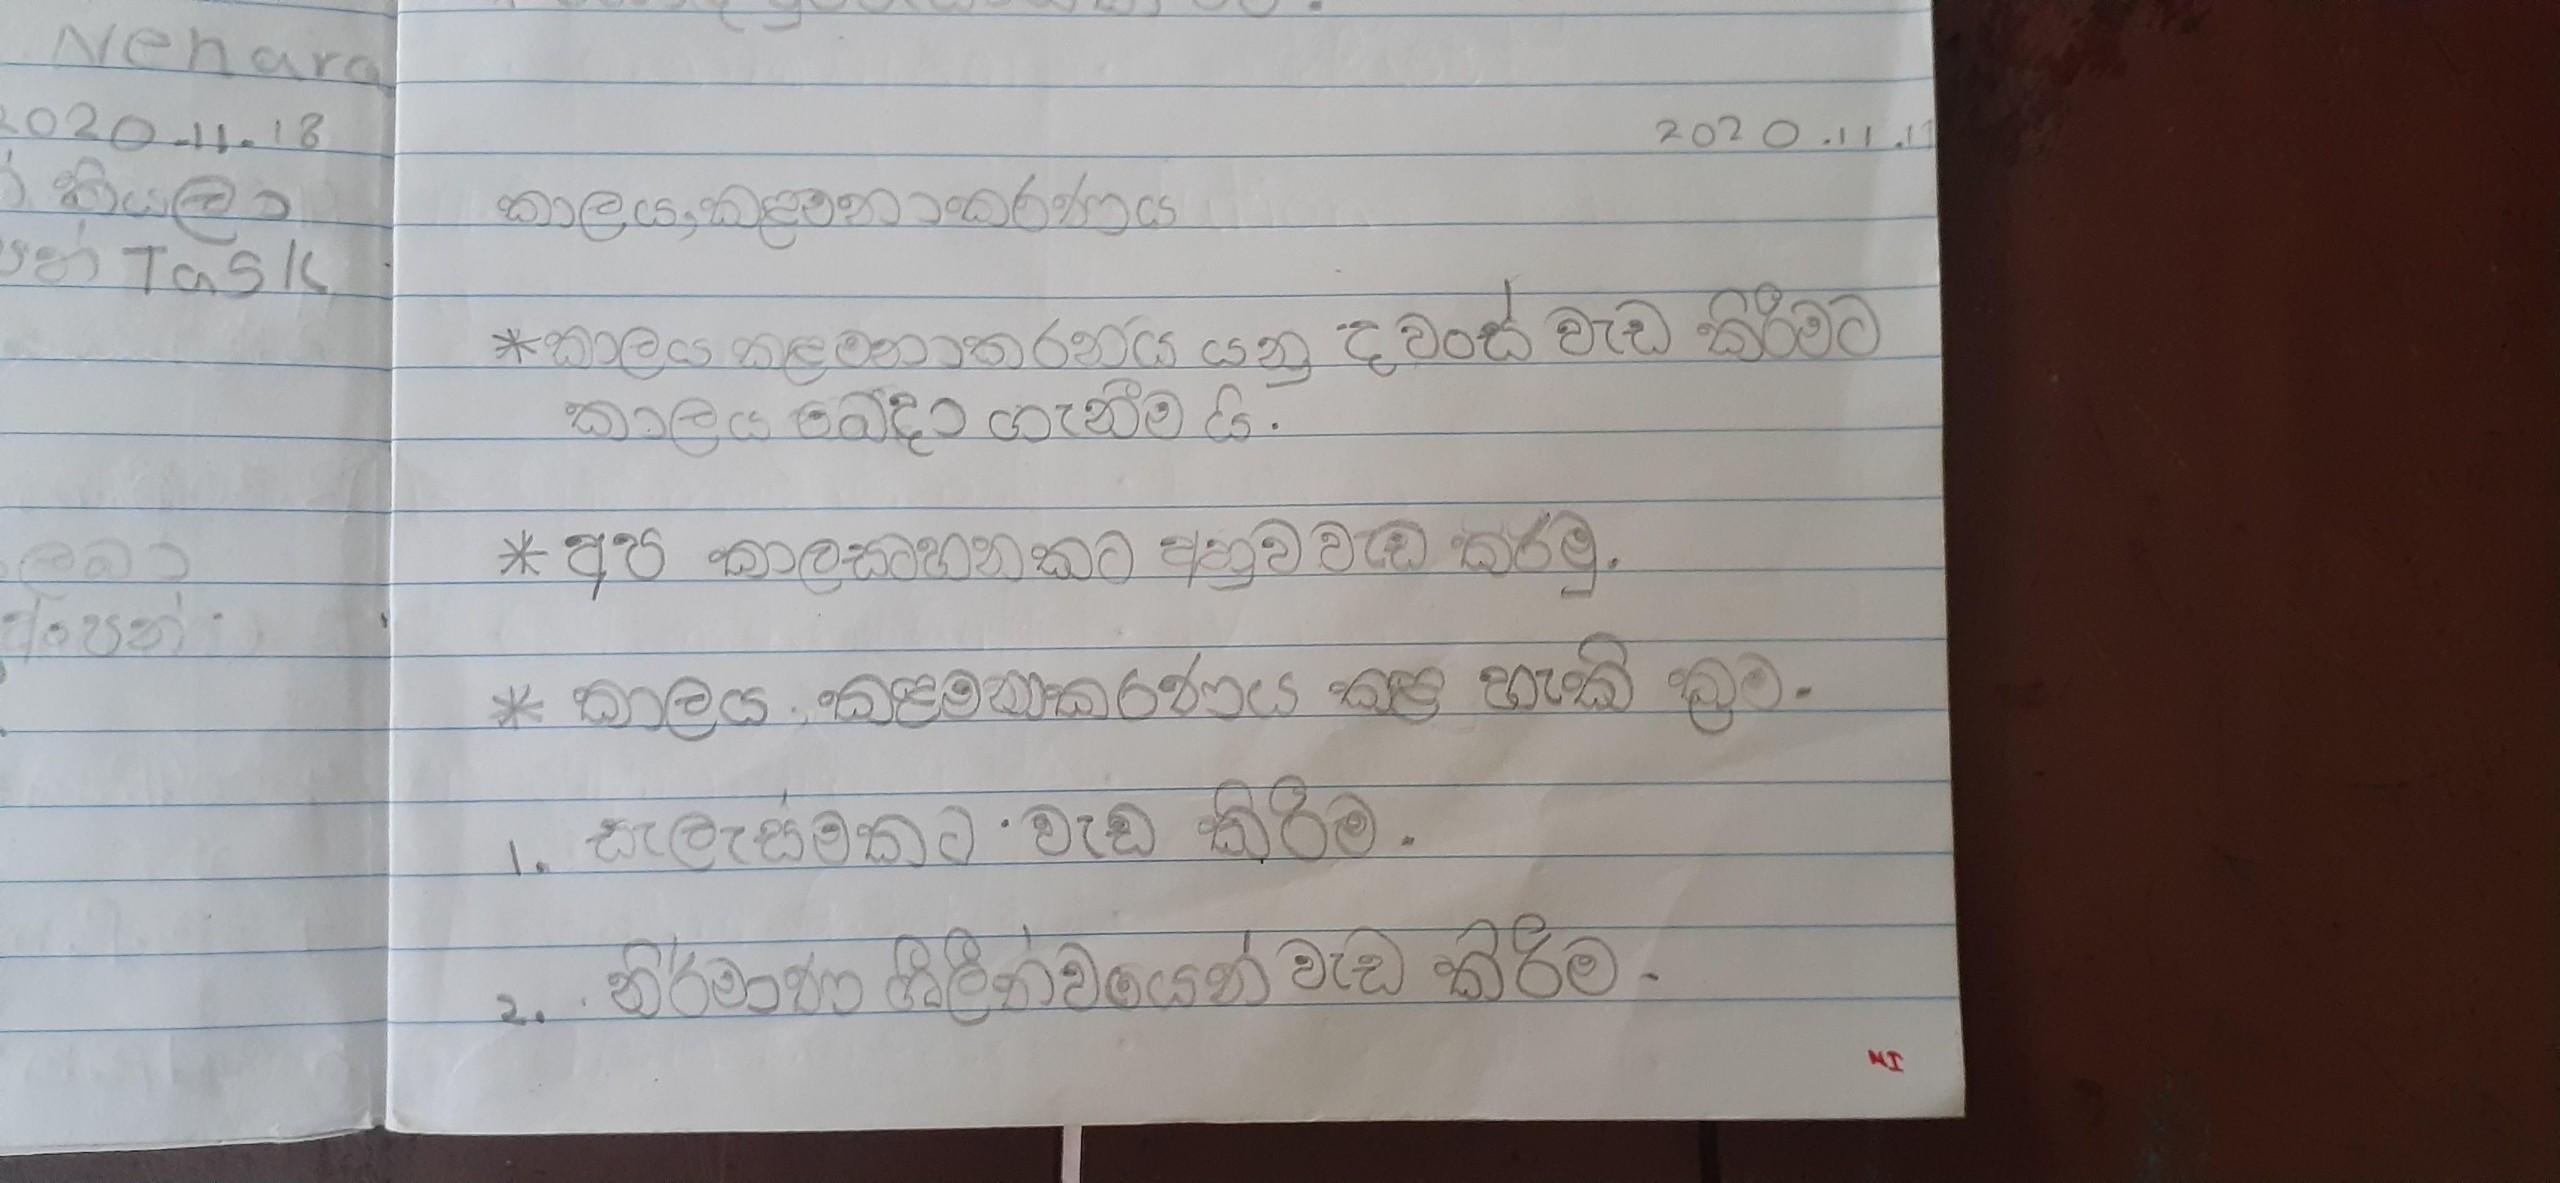 Nehara
2020.11.18
කියලා
Task
2020.11.1
කාලය, කළමනාකරණය
* කාලය කළමනාකරනය යනු දවසේ වැඩ කිරීමට
කාලය බේදා ගැනීම යි.
* අප කාලසටහනකට අනුව වැඩ කරමු.
* කාලය කළමනාකරණය කළ හැකි ක්‍රම.
1. සැලැස්මකට වැඩ කිරීම.
2. නිර්මාණ ශීලීත්වයෙන් වැඩ කිරීම.